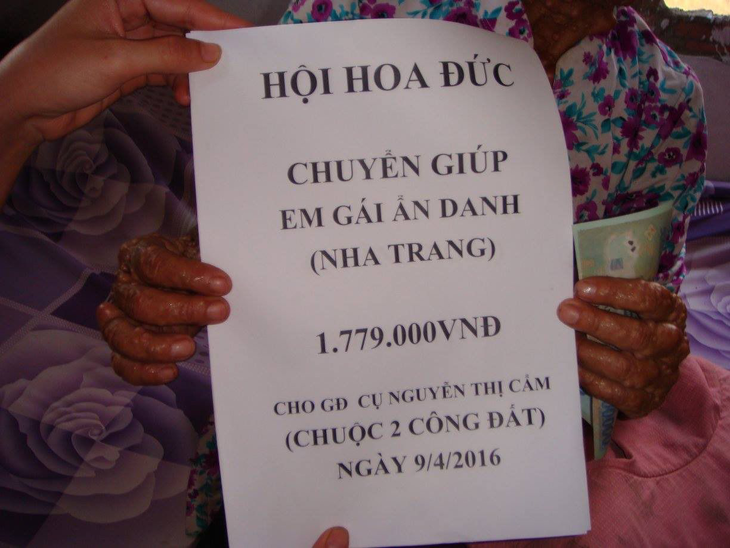 HỘI HOA ĐỨC
CHUYỂN GIÚP
EM GÁI ẨN DANH
(NHA TRANG)
1.779.000VNĐ
CHO GĐ CỤ NGUYỄN THỊ CẢM
(CHUỘC 2 CÔNG ĐẤT)
NGÀY 9/4/2016